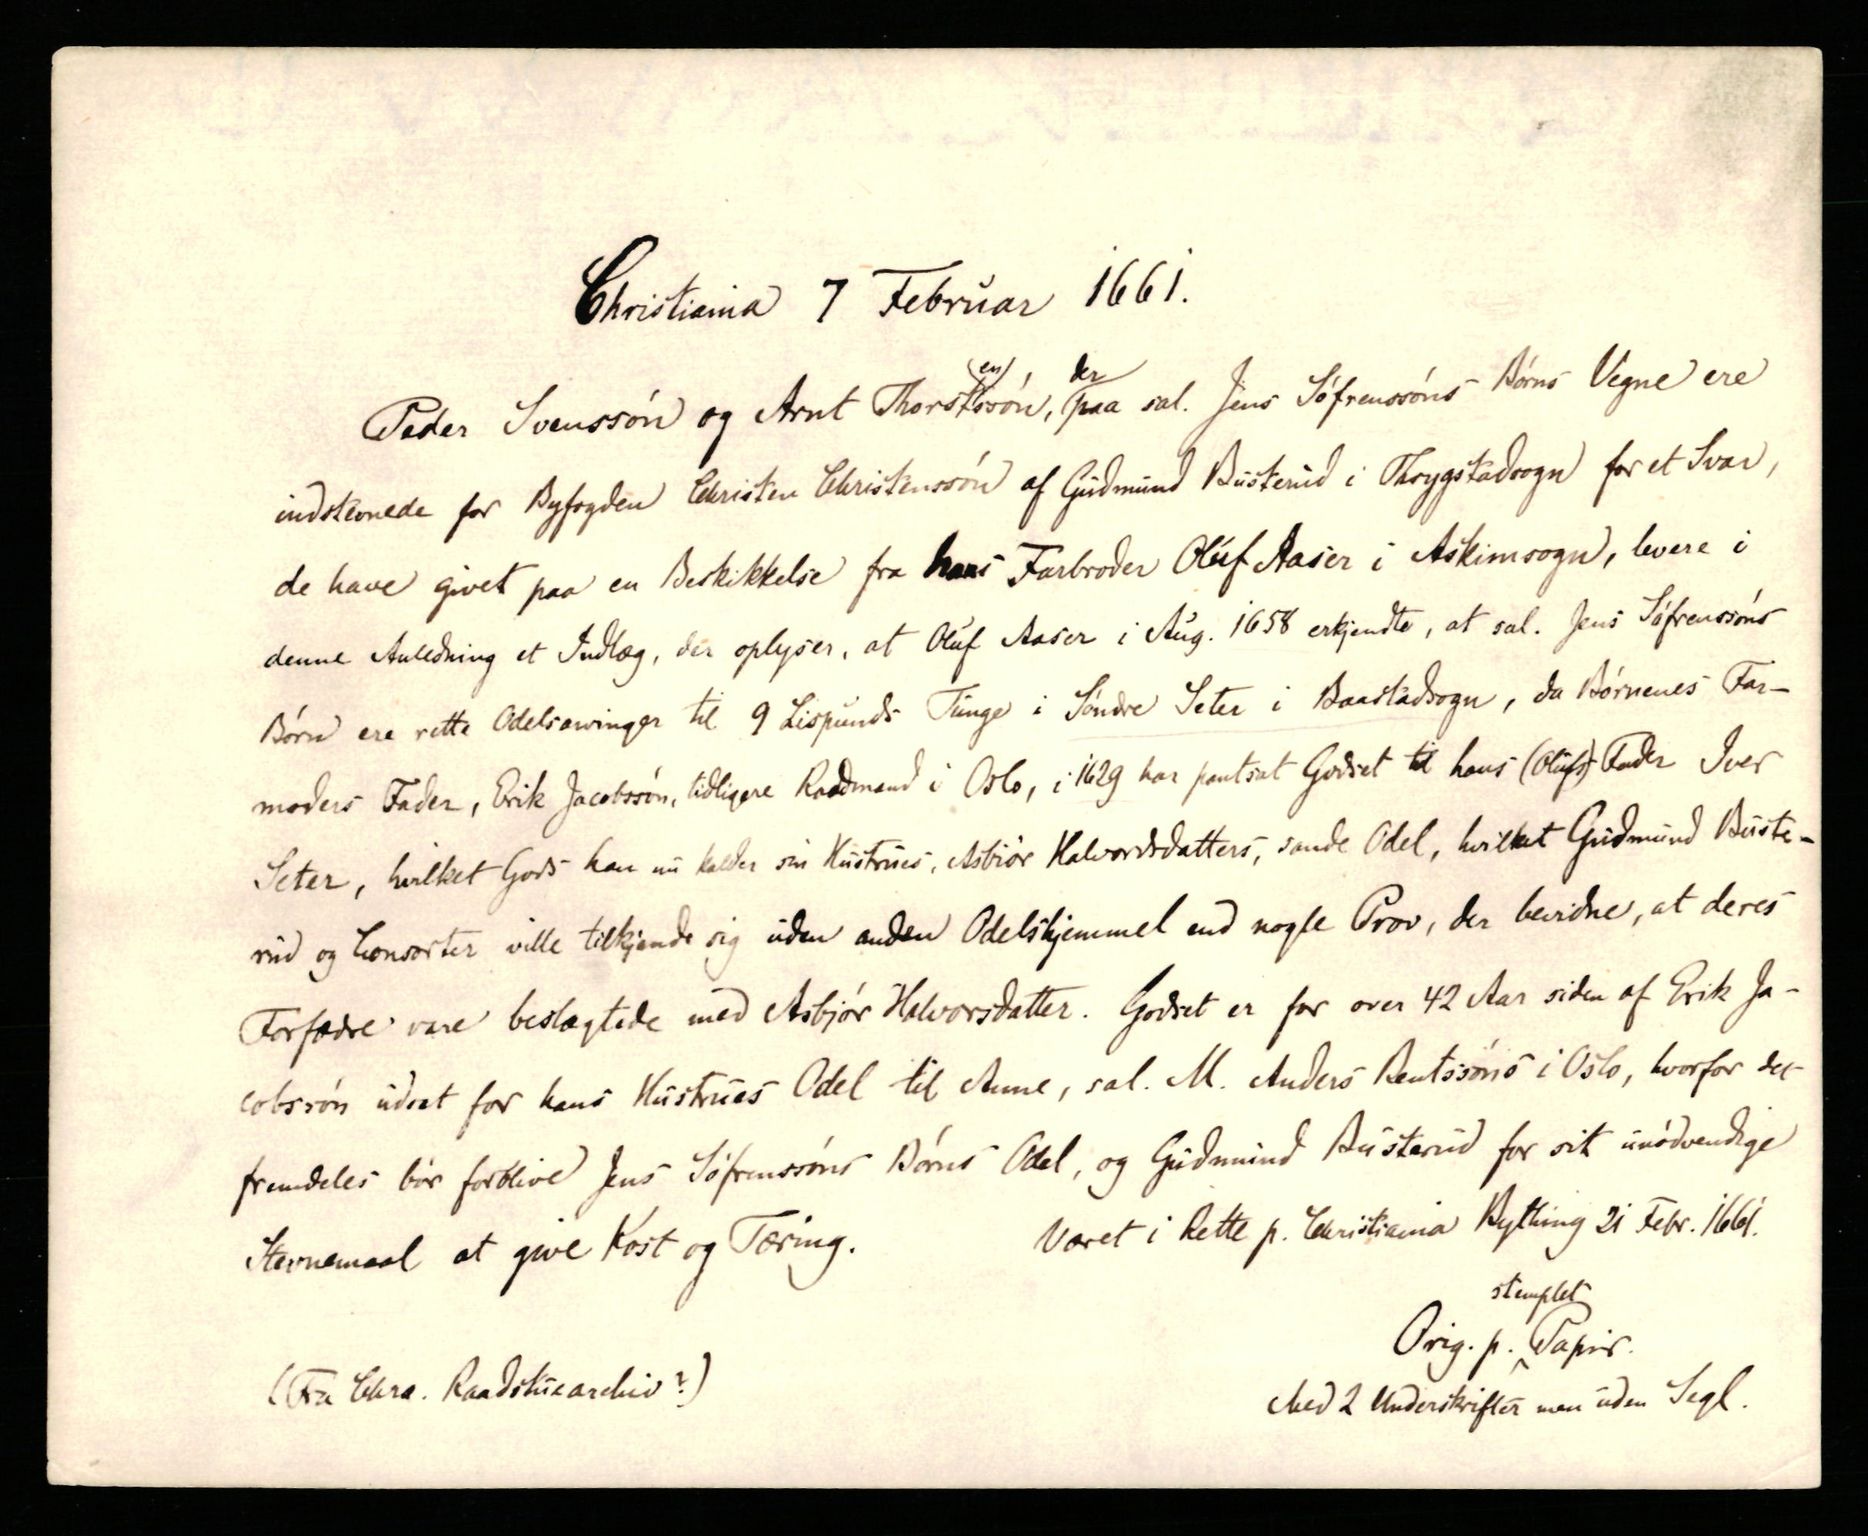 Christiania 7 Februar 1661.
Peder Svenssón og Arnt Thorst(en)ssón, der paa sal. Jens Sófrenssóns Bórns Vegne ere
indstevnede for Byfogden Christen Christenssón af Gudmund Busterud i Thrygstadsogn for et Svar,
de have givet paa en Beskikkelse fra hans Farbroder Oluf Aaser i Askimsogn, levere i
denne Anledning et Indlæg, der oplyser, at Oluf Aaser i Aug. 1658 erkjendte, at sal. Jens Sófrenssóns
Bórn ere rette Odelsarvinger til 9 Lispunds Tunge i Sóndre Seter i Baastadsogn, da Bórnenes Far-
moders Fader, Erik Jacobssón, tidligere Raadmand i Oslo, i 1629 har pantsat Godset til hans (Olufs) Fader Iver
Seter, hvilket Gods han nu kalder sin Hustrues, Asbiór Halvordsdatters, sande Odel, hvilket Gudmund Buste-
rud og Consorter ville tilkjende sig uden anden Odelshjemmel end nogle Prov, der bevidne, at deres
Forfædre vare beslægtede med Asbjór Halvorsdatter. Godset er for over 42 Aar siden af Erik Ja-
cobssón udsat for hans Hustrues Odel til Anne, sal. M. Anders Bentssóns i Oslo, hvorfor det
fremdeles bór forblive Jens Sófrenssóns Bórns Odel, og Gudmund Busterud for sit unódvendige
Stevnemaal at give Kost og Tæring. Været i Rette p. Christiania Bything 21 Febr. 1661.
Orig. p. stemplet Papir.
(Fra Chra. Raadstuearchiv?)
Med 2 Underskrifter men uden Segl.